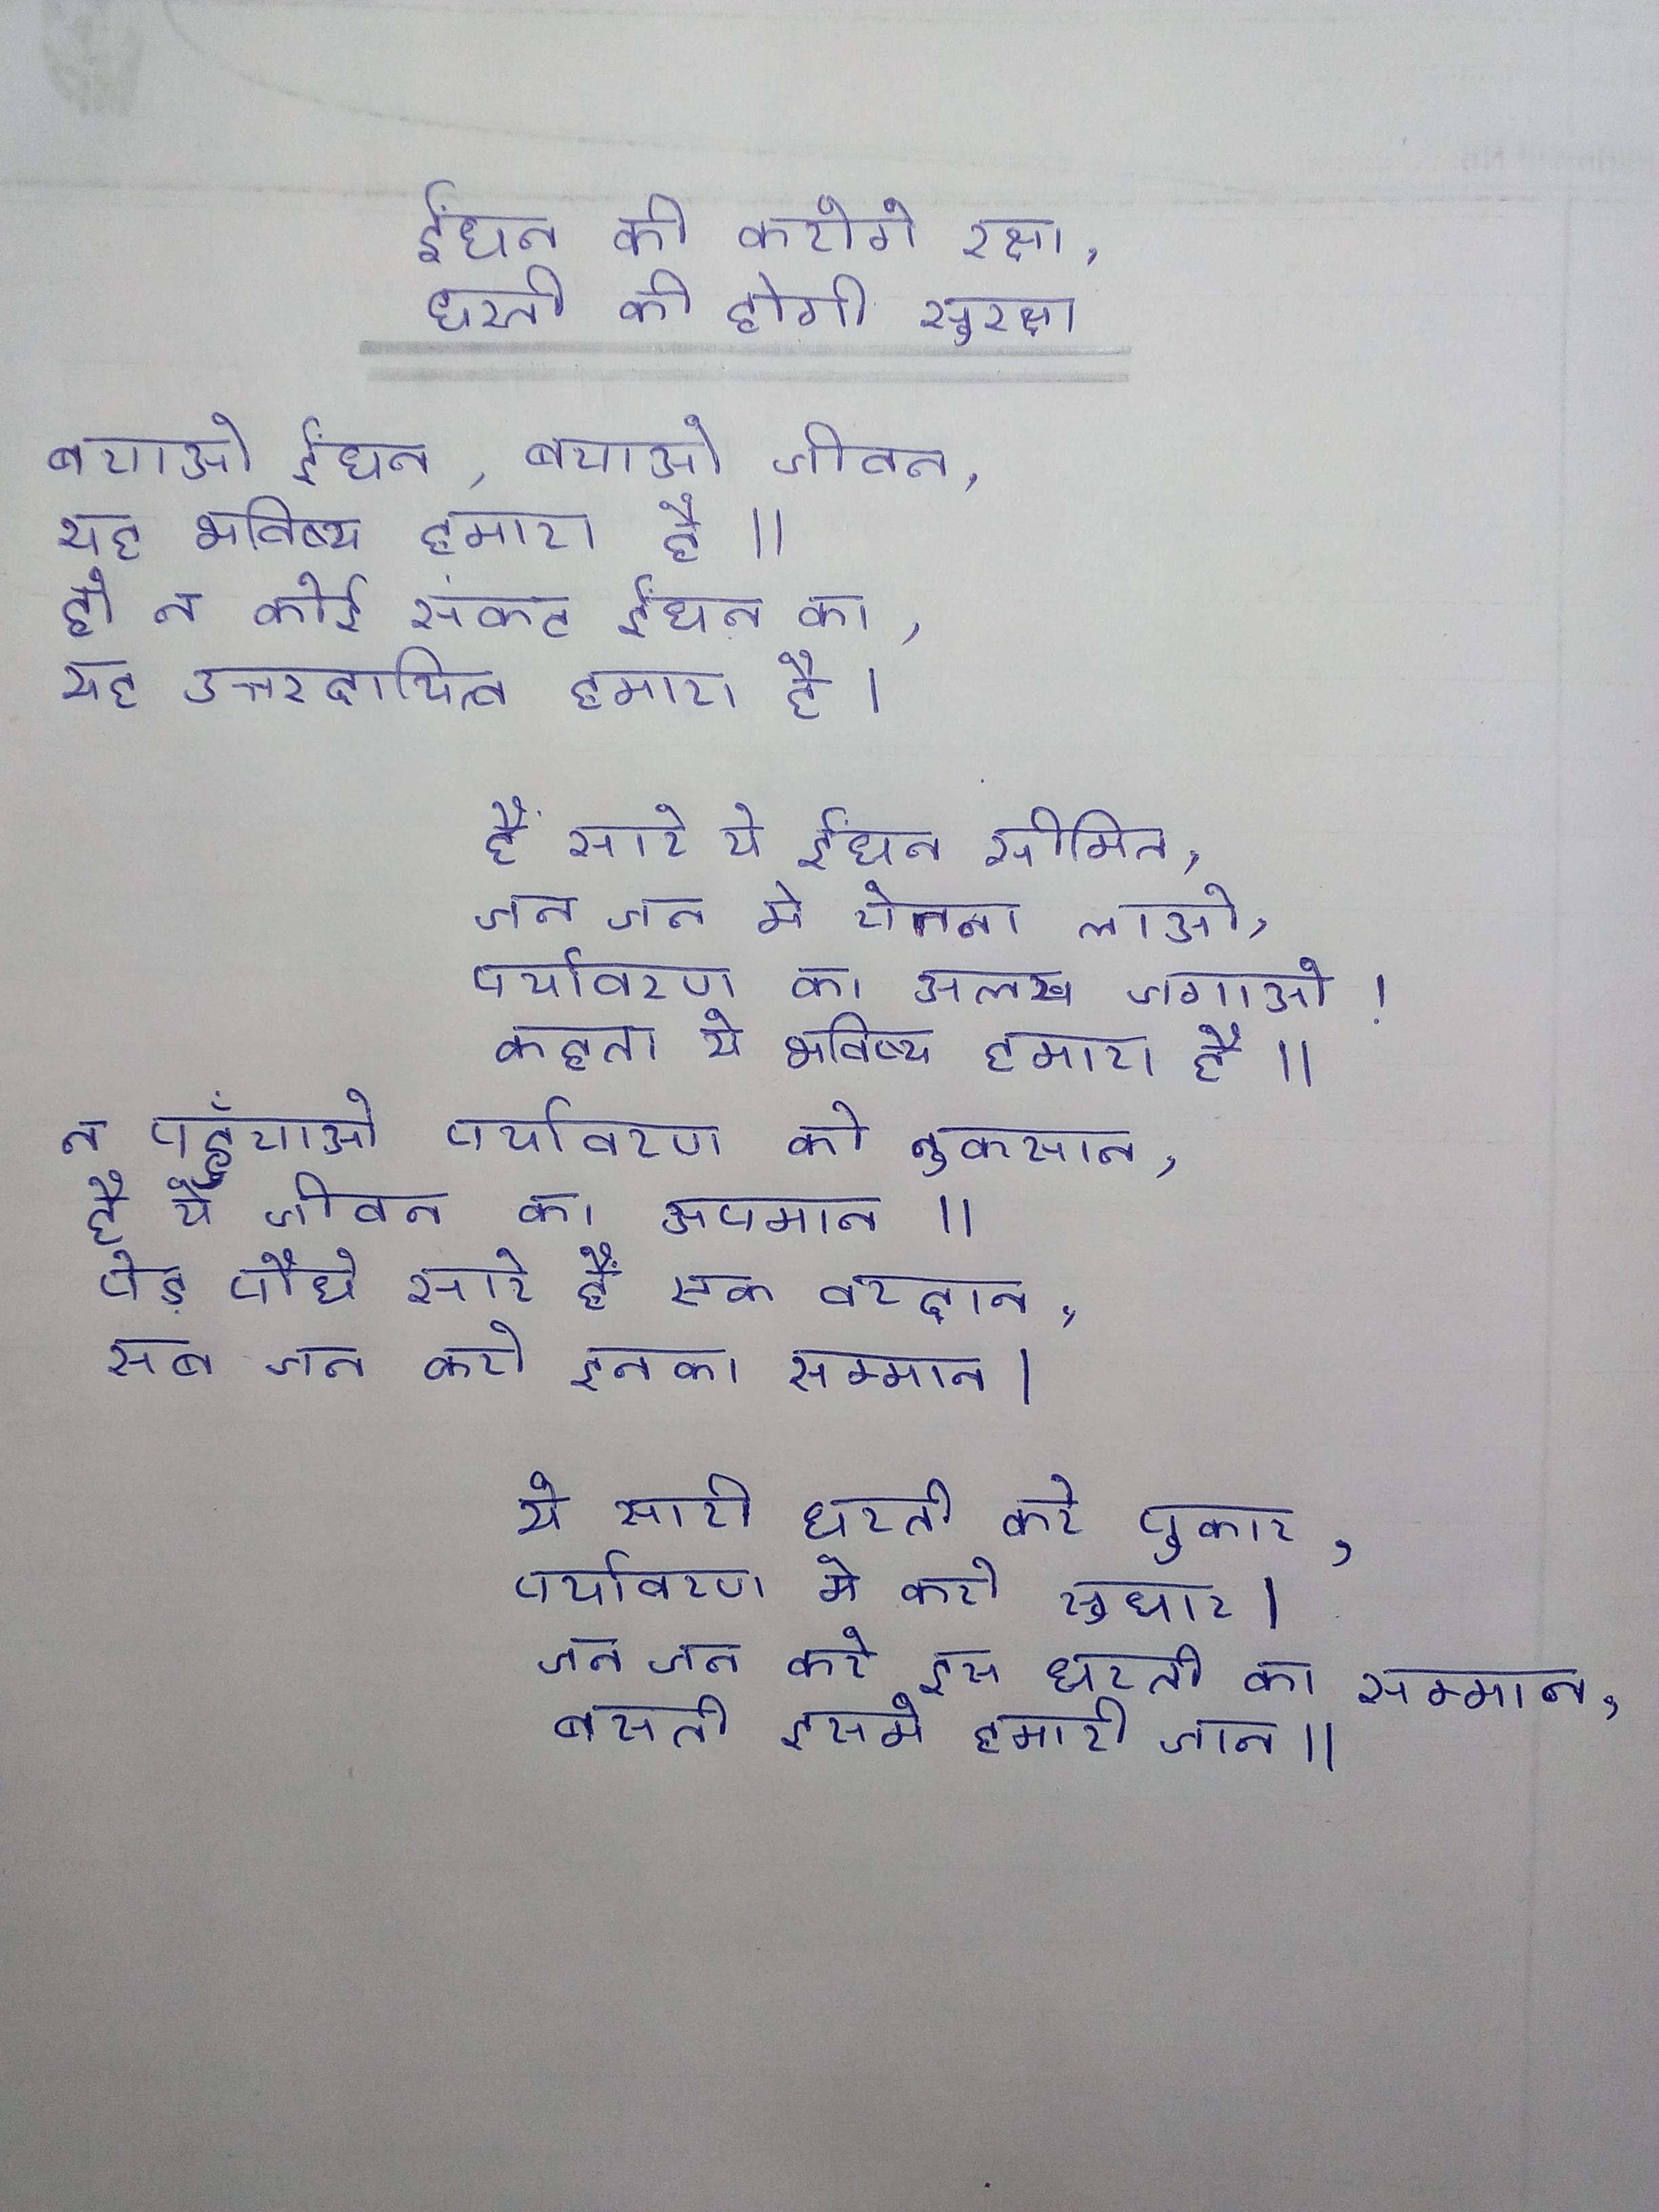 ईंधन की करोगे रक्षा,
धरती की होगी सुरक्षा
बचाओ ईंधन, बचाओ जीवन,
यह भविष्य हमारा है ||
हो न कोई संकट ईंधन का,
यह उत्तरदायित्व हमारा है |
हैं सारे ये ईंधन सीमित,
जन जन मे चेतना लाओ,
पर्यावरण का अलख जगाओ !
कहता ये भविष्य हमारा है ||
न पहुँचाओ पर्यावरण को नुकसान,
है ये जीवन का अपमान ||
पेड़ पौधे सारे हैं एक वरदान,
सब जन करो इनका सम्मान |
ये सारी धरती करे पुकार,
पर्यावरण मे करो सुधार |
जन जन करे इस धरती का सम्मान,
बसती इसमे हमारी जान ||